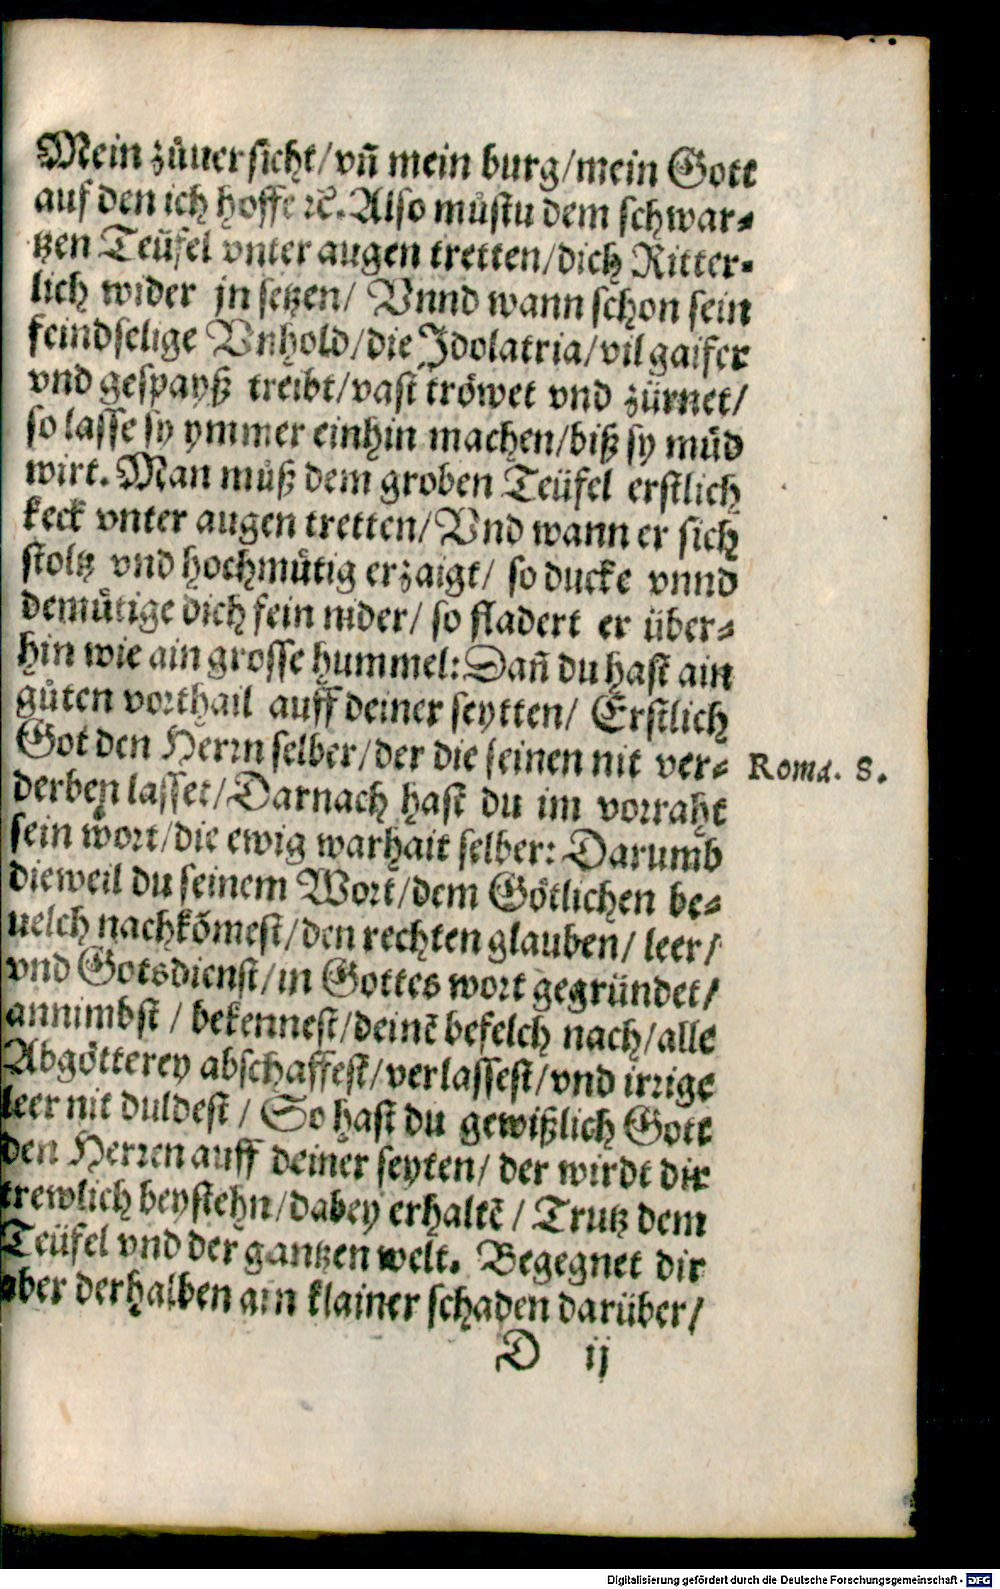 Mein zůuersicht/vñ mein burg/mein Gott
auf den ich hoffe ⁊c. Also můstu dem schwar⸗
tzen Teüfel vnter augen tretten/dich Ritter⸗
lich wider jn setzen/ Vnnd wann schon sein
feindselige Vnhold/die Idolatria/vil gaifer
vnd gespayß treibt/vast tröwet vnd zürnet/
so lasse sy ymmer einhin machen/biß sy můd
wirt. Man můß dem groben Teüfel erstlich
keck vnter augen tretten/Vnd wann er sich
stoltz vnd hochmůtig erzaigt/ so ducke vnnd
demůtige dich fein nider/ so fladert er über⸗
hin wie ain grosse hummel: Dañ du hast ain
gůten vorthail auff deiner seytten/ Erstlich
Got den Herrn selber/der die seinen nit ver⸗
Roma. 8.
derben lasset/Darnach hast du im vorraht
sein wort/die ewig warhait selber: Darumb
dieweil du seinem Wort/dem Götlichen be⸗
uelch nachkõmest/den rechten glauben/ leer/
vnd Gotsdienst/in Gottes wort gegründet/
annimbst / bekennest/deinẽ befelch nach/alle
Abgötterey abschaffest/verlassest/vnd irrige
leer nit duldest / So hast du gewißlich Gott
den Herren auff deiner seyten/ der wirdt dir
trewlich beystehn/dabey erhaltẽ / Trutz dem
Teüfel vnd der gantzen welt. Begegnet dir
aber derhalben ain klainer schaden darüber/
D ij
Digitalisierung gefördert durch die Deutsche Forschungsgemeinschaft - DFG